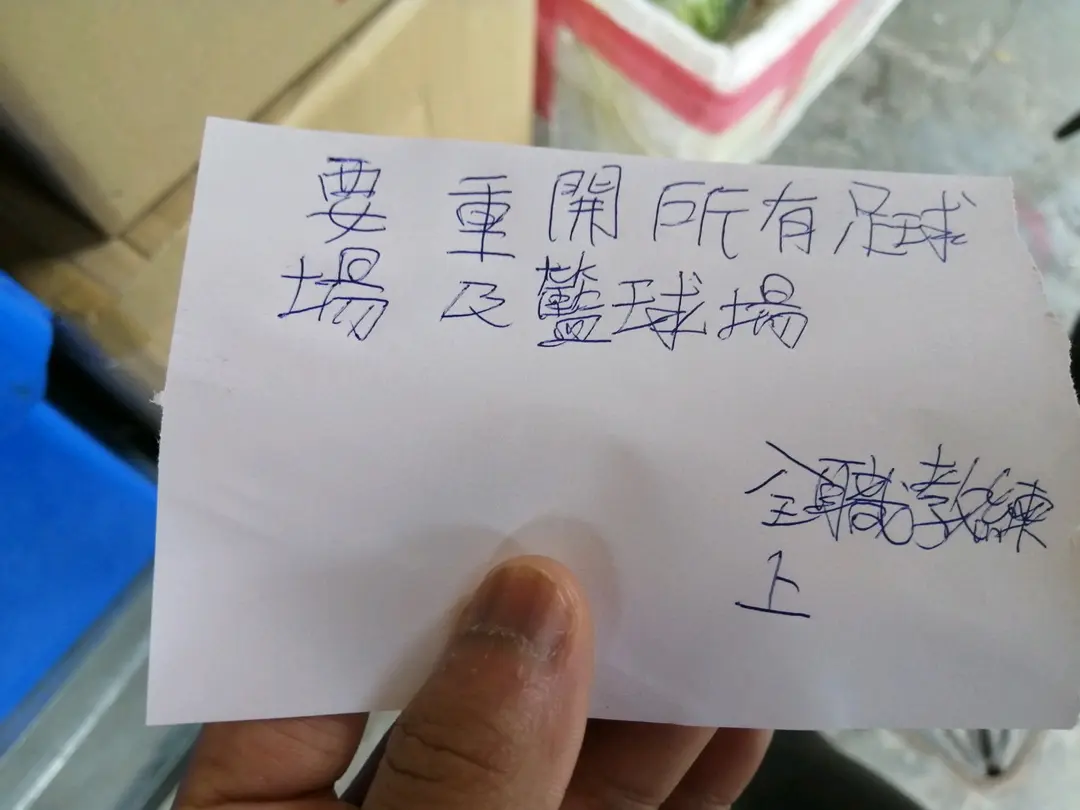 要重開所有足球
場及籃球場
全職教練
上